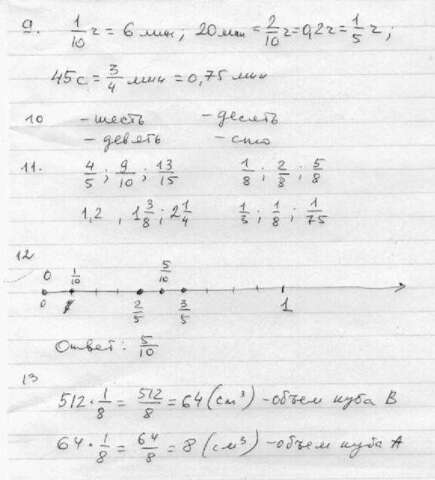 9. 1/10 ч = 6 мин; 20 мин = 2/10 ч = 0,2 ч = 1/5 ч;
45 с = 3/4 мин = 0,75 мин
10 - шесть - десять
- девять - сто
11. 4/5; 9/10; 13/15 1/8; 2/8; 5/8
1,2, 1 3/8; 2 1/4 1/3; 1/8; 1/75
12
0 1/10 5/10
0 2/5 3/5 1
Ответ: 5/10
13
512 · 1/8 = 512/8 = 64 (см³) - объем куба В
64 · 1/8 = 64/8 = 8 (см³) - объем куба А